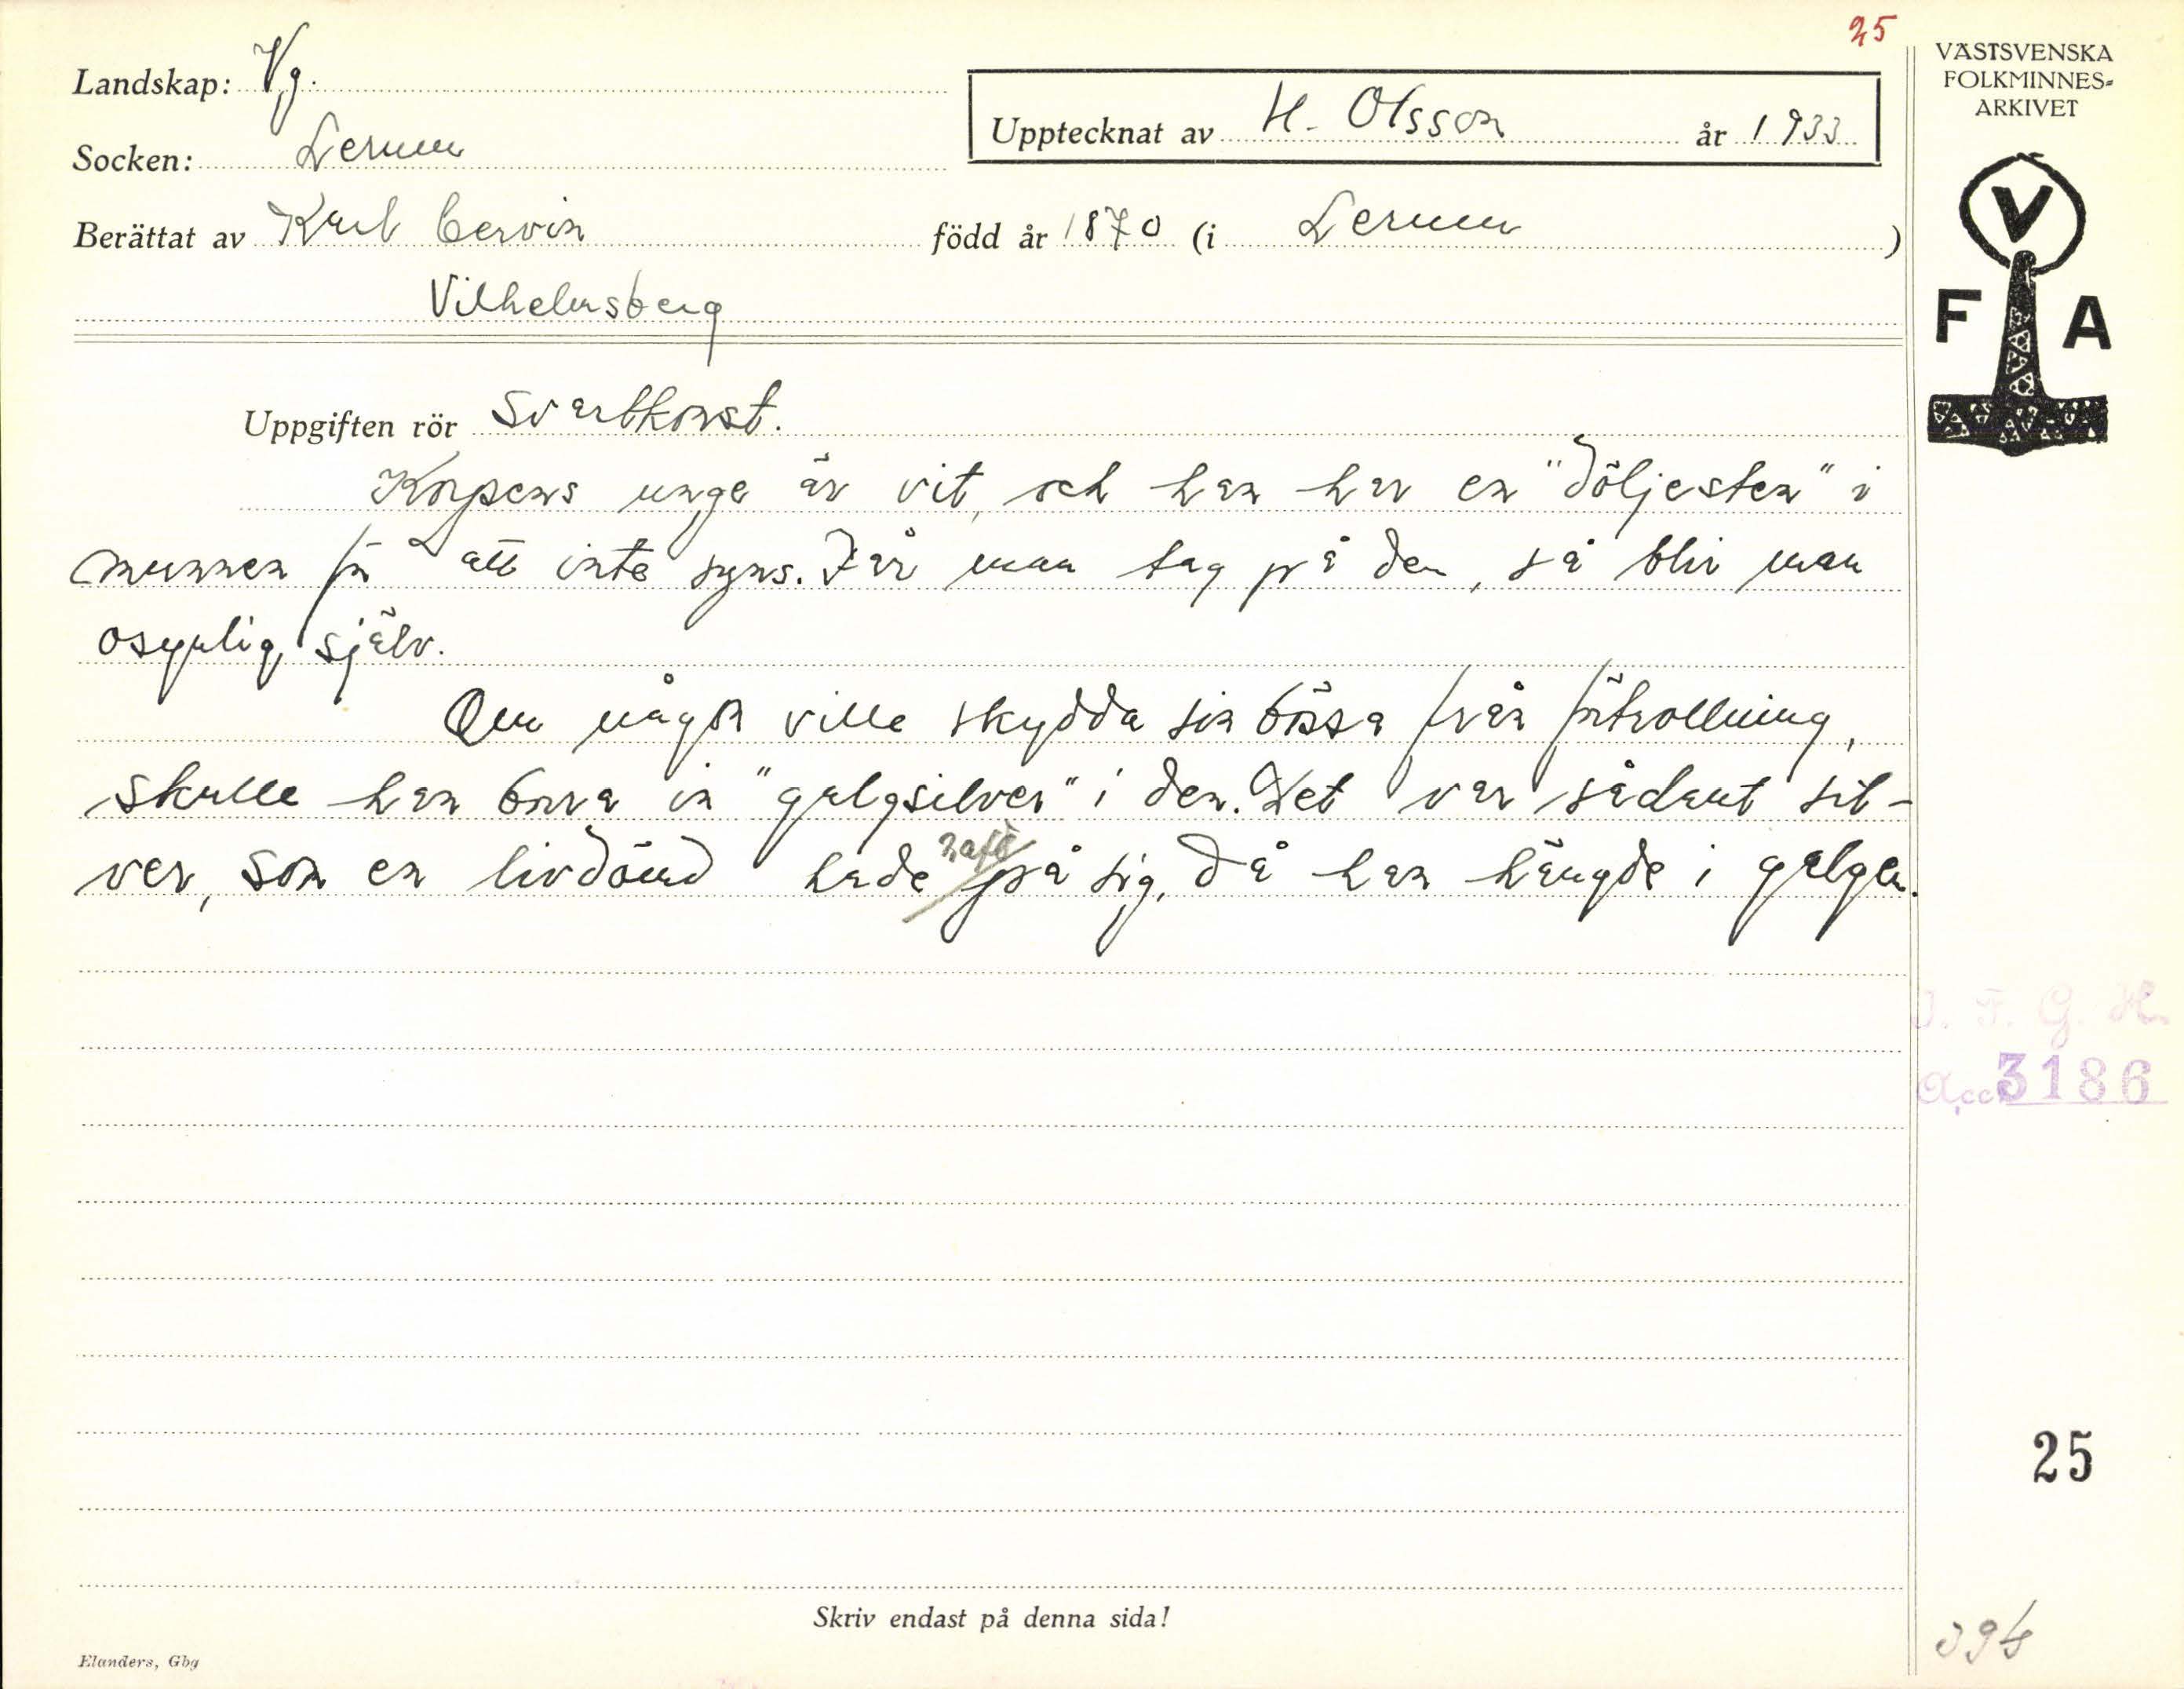 25
Landskap: Vg.
Socken: Lerum
Upptecknat av H. Olsson år 1933
Berättat av Karl Cervin född år 1870 (i Lerum)
Vilhelmsberg
VÄSTSVENSKA
FOLKMINNES-
ARKIVET
V
F A
Uppgiften rör Svartkonst.
Korpens unge är vit, och han har en "döljesten" i
munnen för att inte synas. Får man tag på den, så blir man
osynlig själv.
Om någon ville skydda sin bössa från förtrollning,
skulle han borra in "galgsilver" i den. Det var sådant sil-
ver, som en livdömd hade haft på sig, då han hängde i galgen.
I. F. G. H.
Acc 3186
25
Skriv endast på denna sida!
Elanders, Gbg